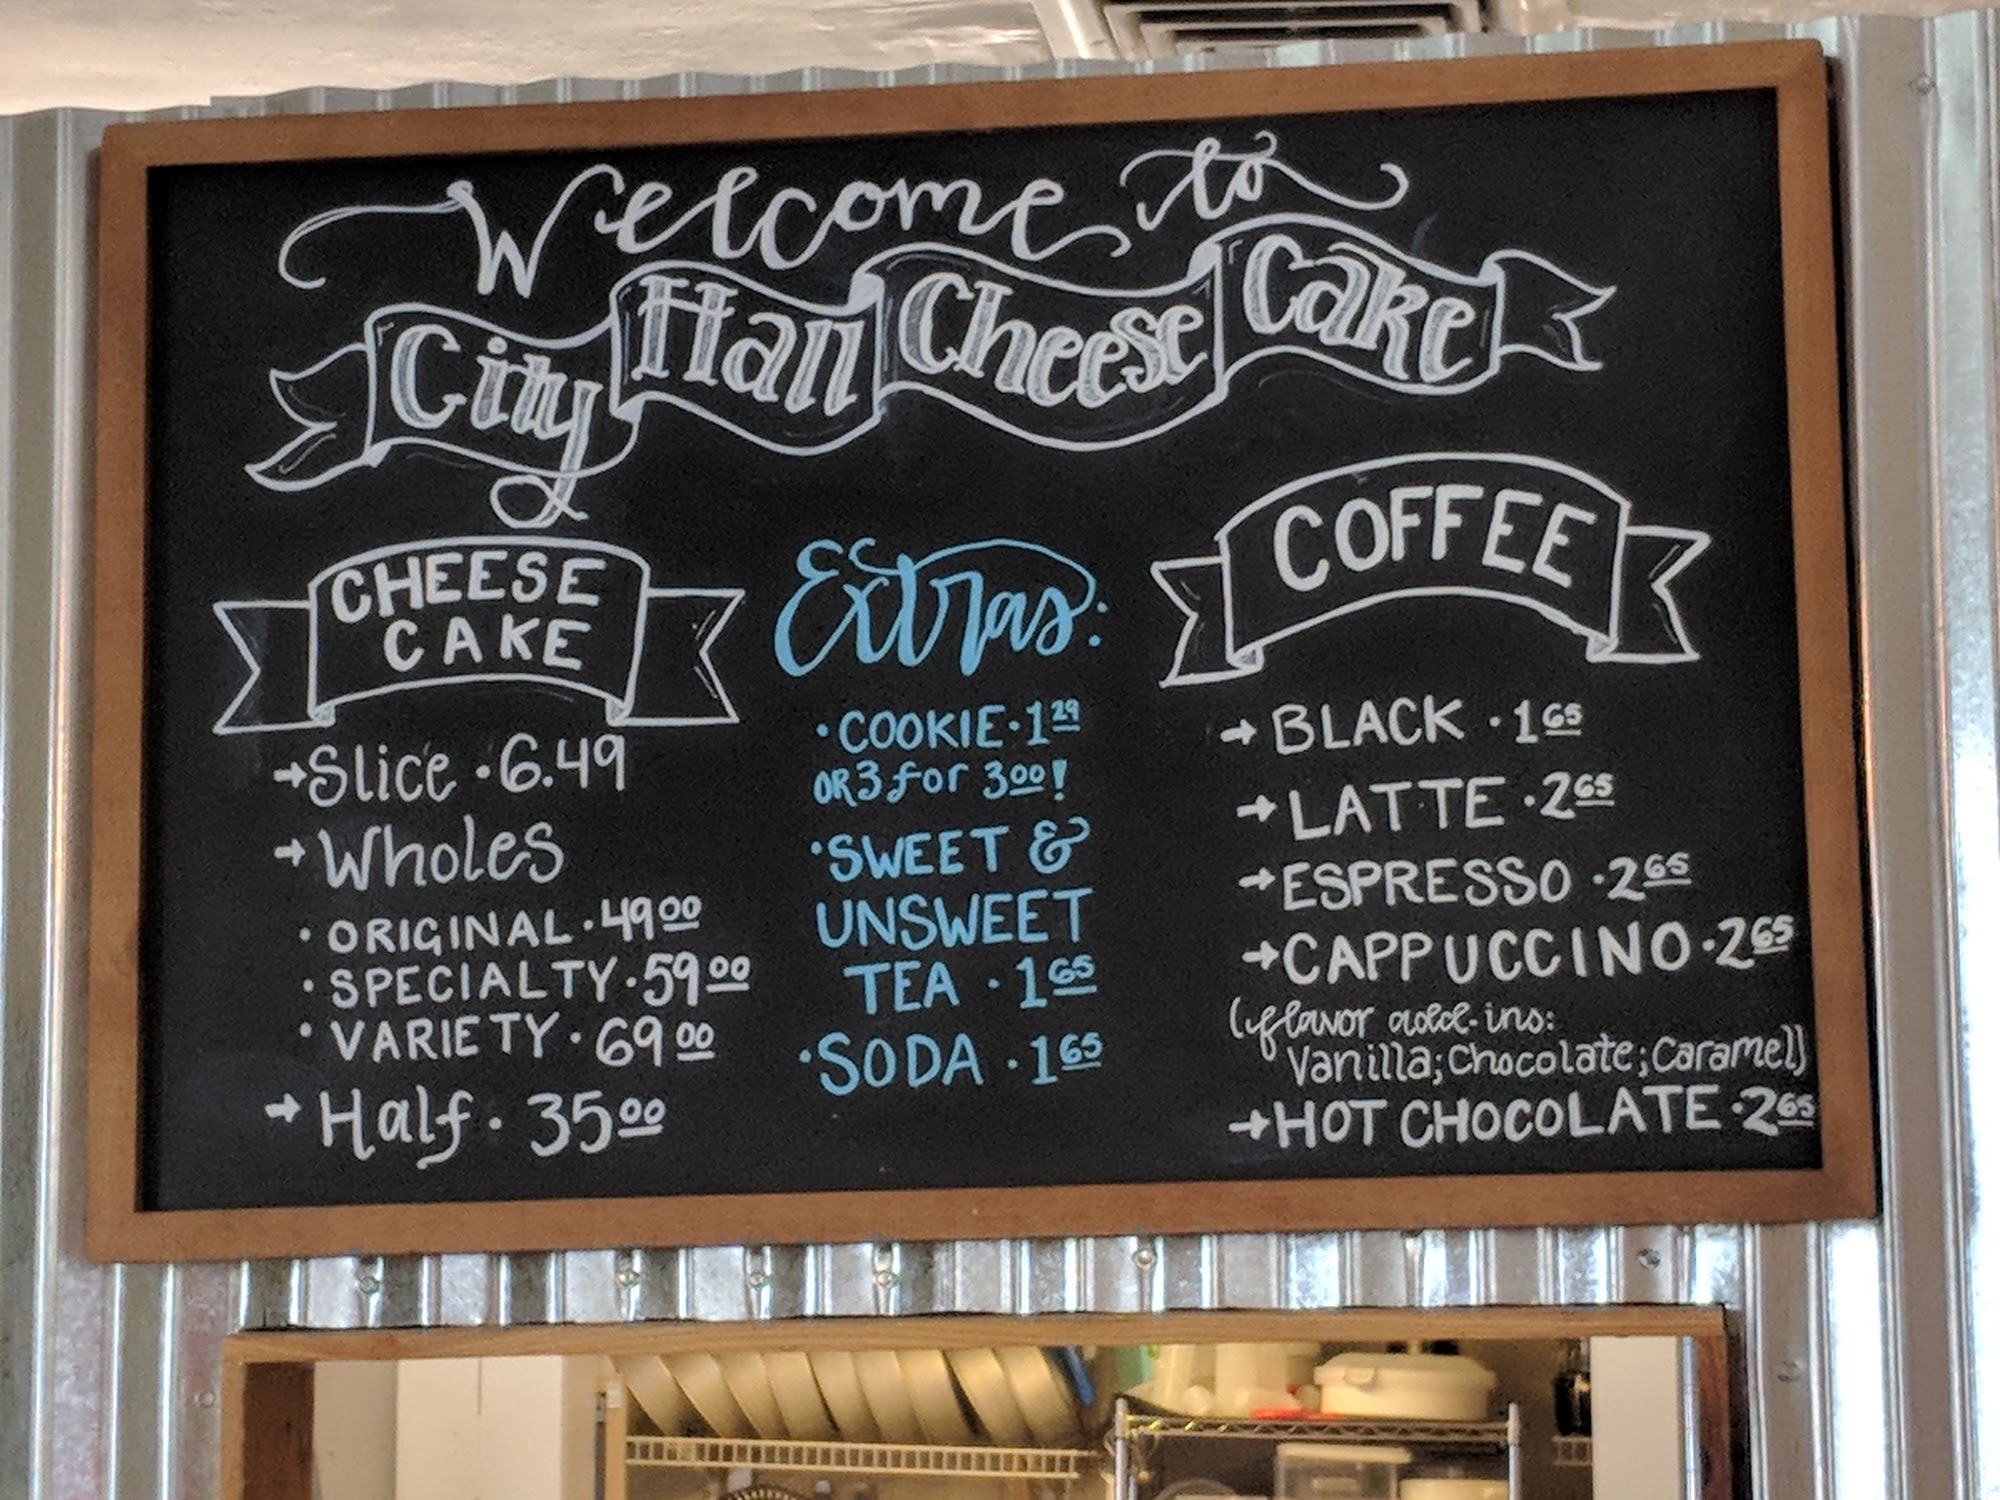 Welcome to
City Hall Cheese Cake
CHEESE
CAKE
→Slice · 6.49
→Wholes
· ORIGINAL · 49 00
· SPECIALTY · 59 00
· VARIETY · 69 00
→ Half · 35 00
Extras:
· COOKIE · 1 29
OR 3 for 3 00!
· SWEET &
UNSWEET
TEA · 1 65
· SODA · 1 65
COFFEE
→ BLACK · 1 65
→ LATTE · 2 65
→ ESPRESSO · 2 65
→ CAPPUCCINO · 2 65
(flavor add-ins:
Vanilla; Chocolate; Caramel)
→ HOT CHOCOLATE · 2 65